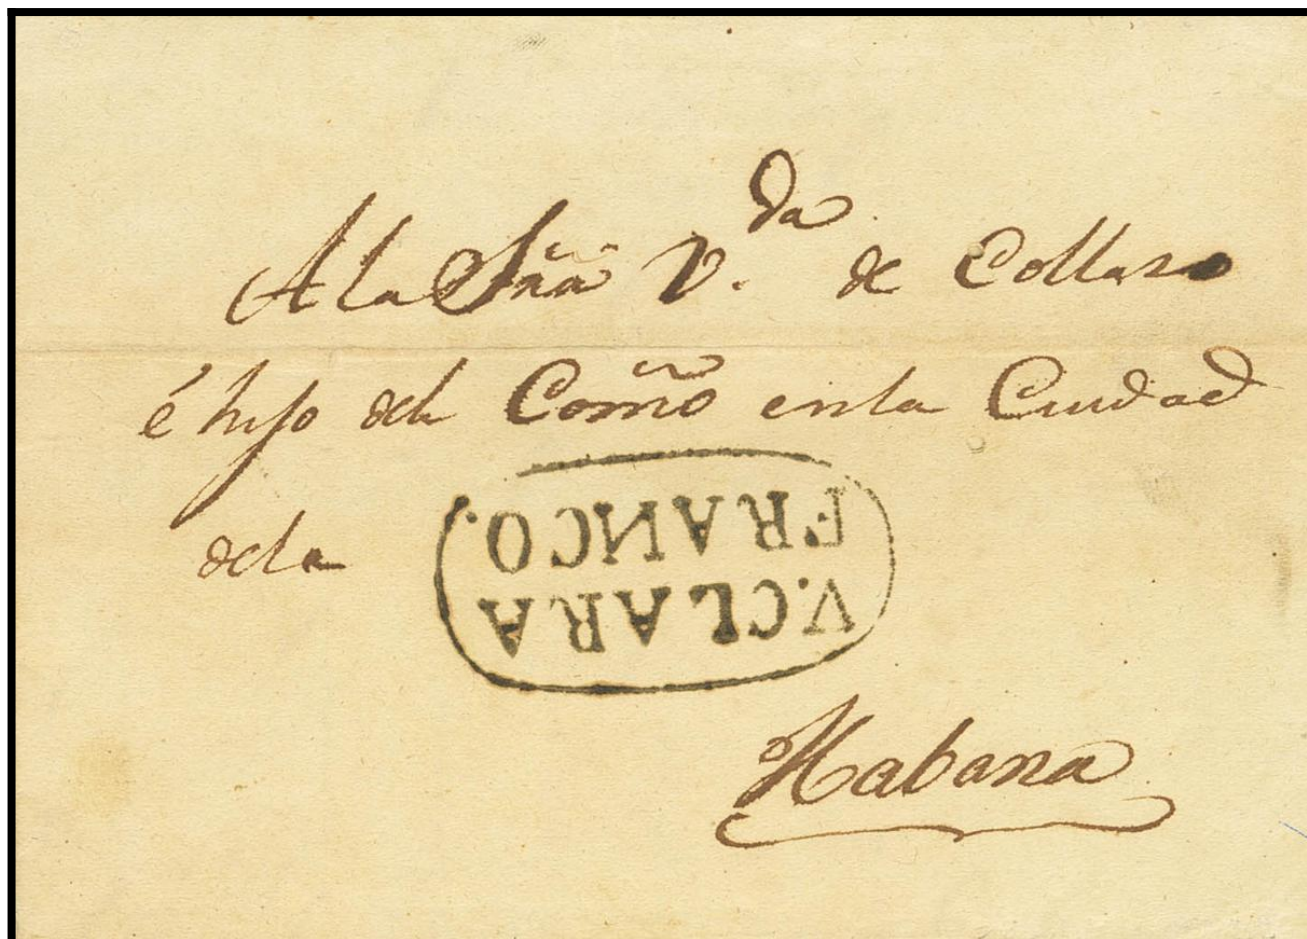 A la Sña V.da de Collazo
é hijo del Comño en la Ciudad
de la
V.CLARA
FRANCO.
Habana